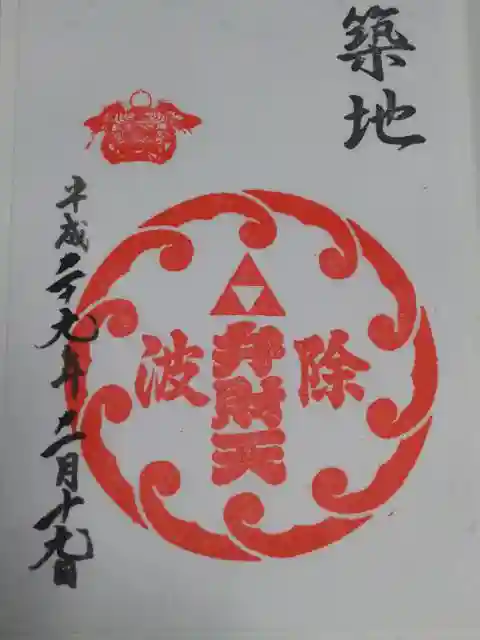 築地
除
弁財天
波
平成二十九年二月十九日